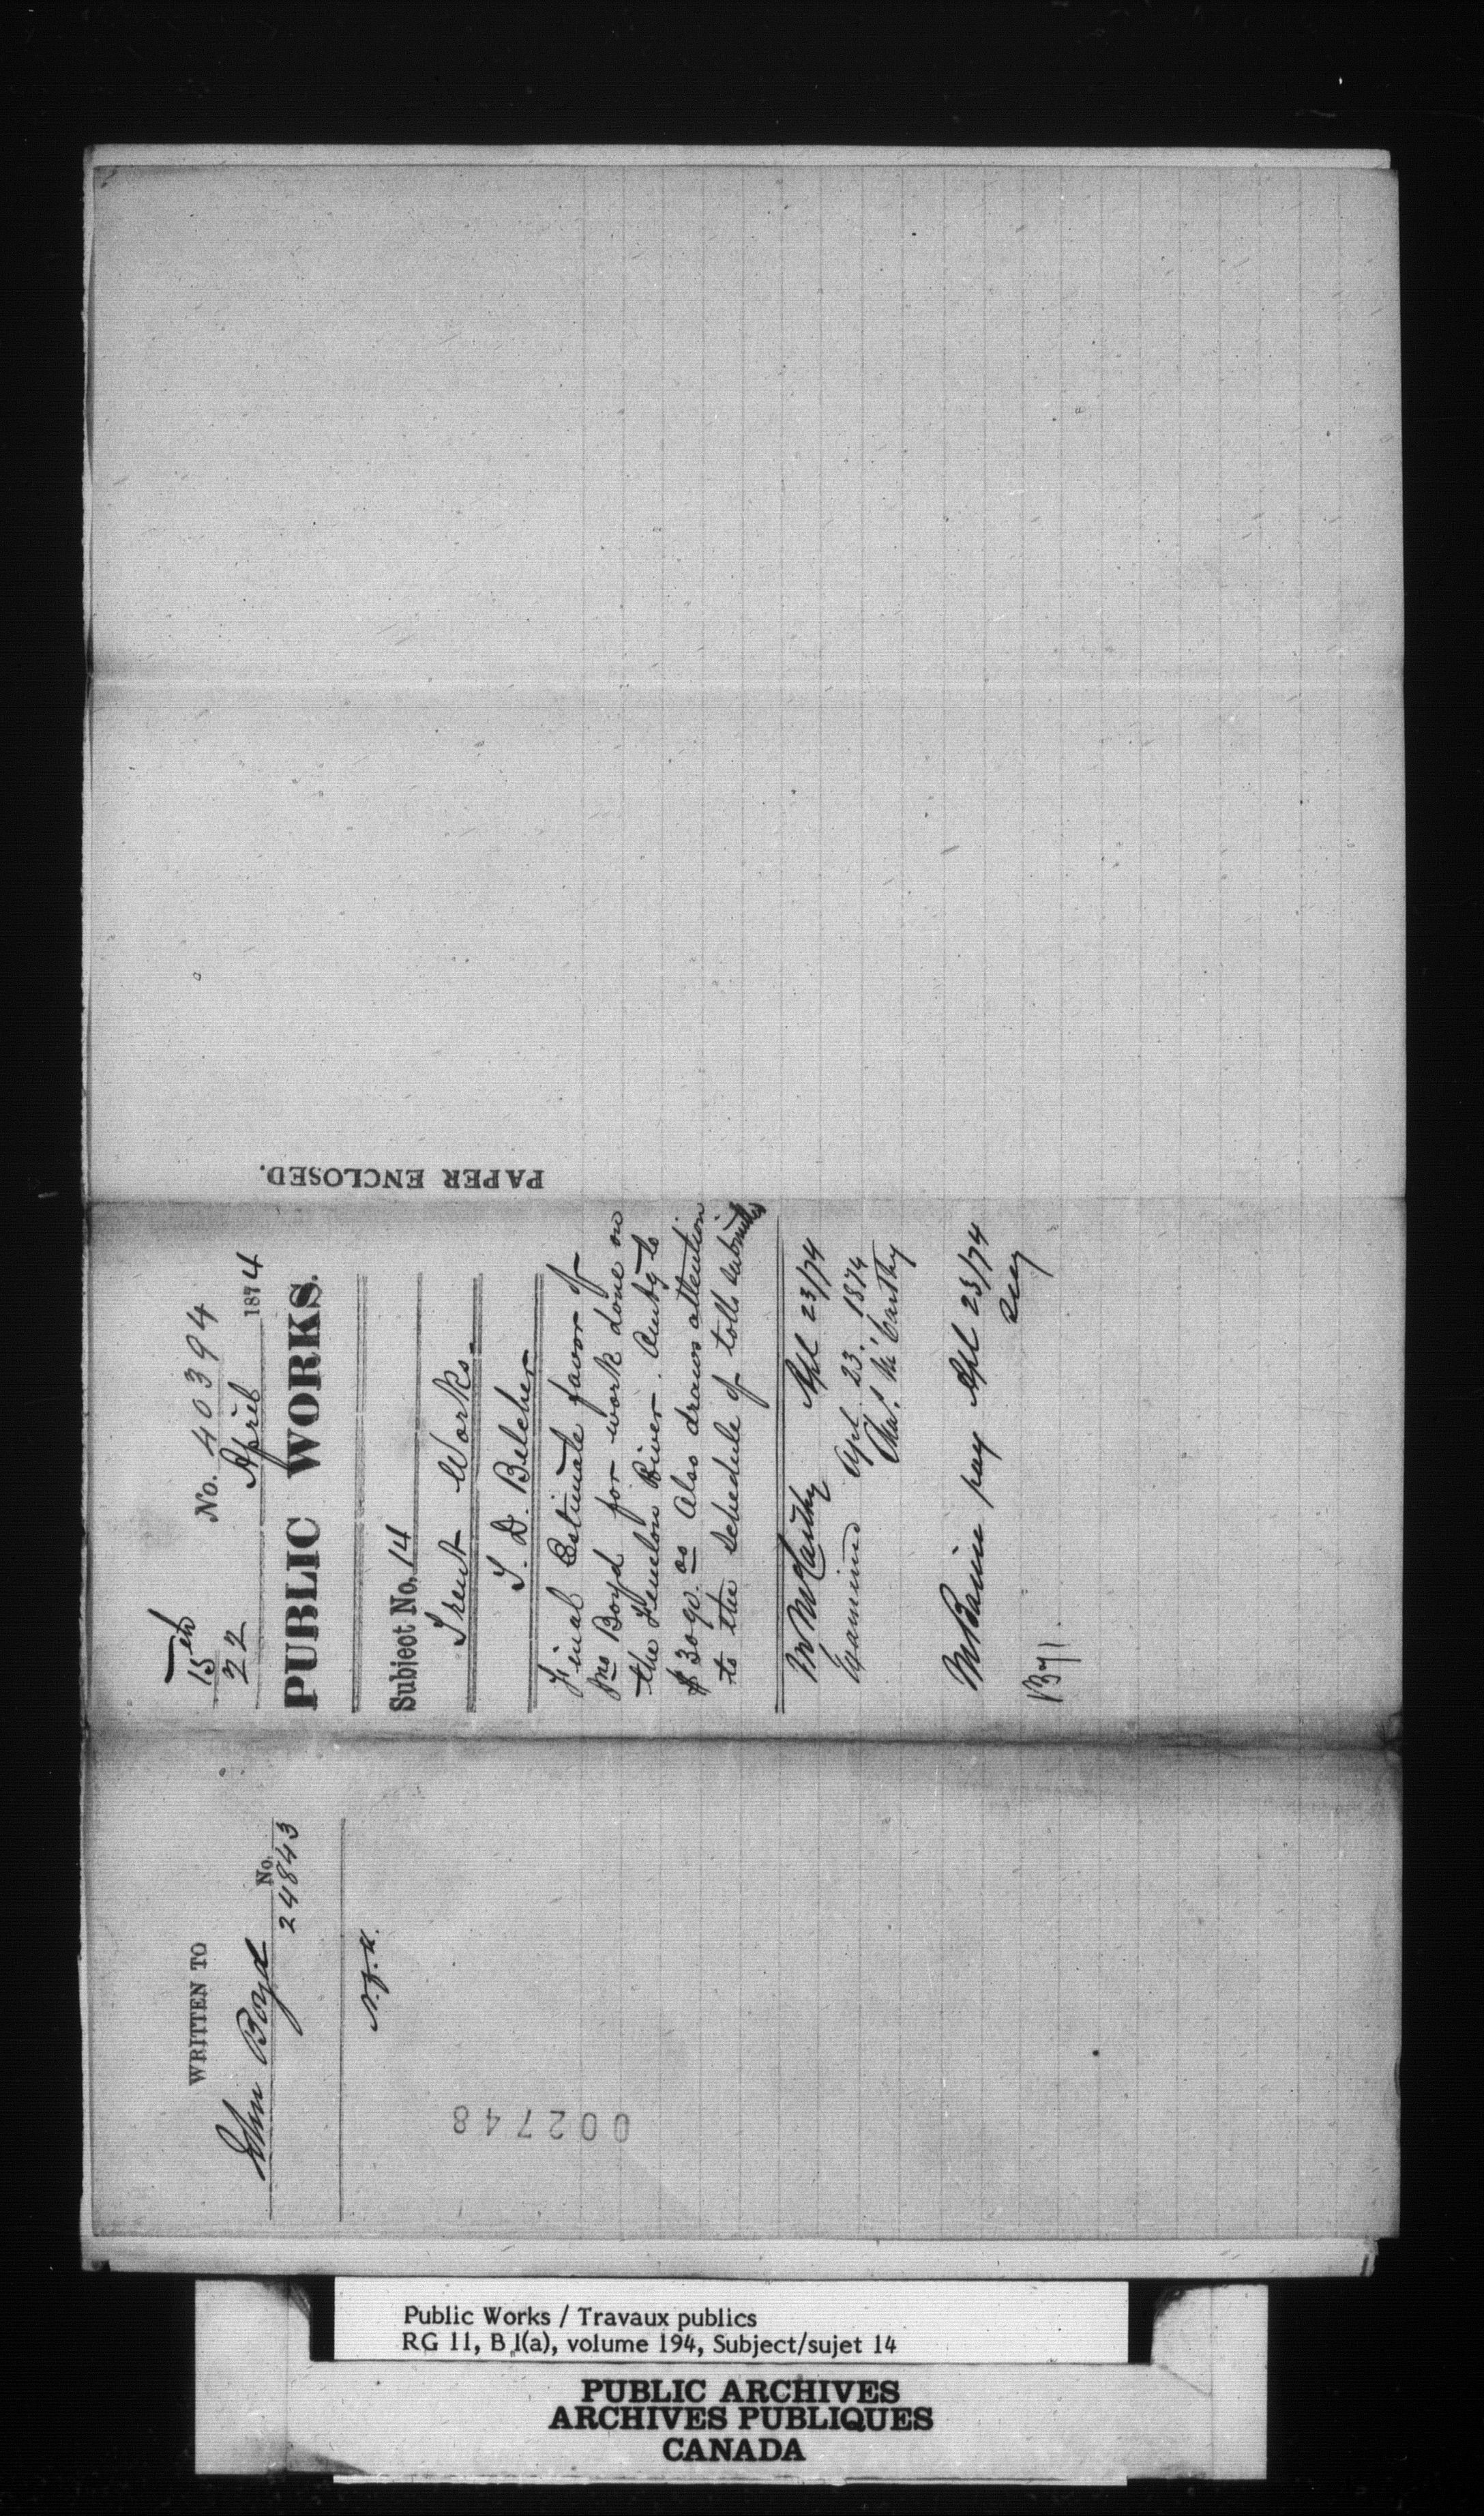 WRITTEN TO
John Boyd
No.
24843
002748
15th
22
No. 40394
April 1874
PUBLIC WORKS.
Subject No. 14
Trent Works.
T. D. Belcher
Final Estimate favor of
Jno Boyd for work done on
the Fenelon River. Amtg to
$3090.00 Also draws attention
to the schedule of tolls submitted
Mr McCarthy Apl 23/74
Examined Apl. 23. 1874
Chas. McCarthy
Mr Baine pay Apl 23/74
PAPER ENCLOSED.
Public Works / Travaux publics
RG 11, B 1(a), volume 194, Subject/sujet 14
PUBLIC ARCHIVES
ARCHIVES PUBLIQUES
CANADA